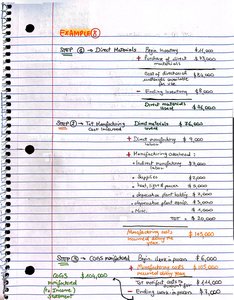 EXAMPLE 8
STEP ① → Direct Materials Begin Inventory $11,000
+ Purchase of direct materials $73,000
Cost of direct materials available for use $84,000
- Ending inventory $8,000
Direct materials used $76,000
STEP ② → Tot Manufacturing Cost Incurred Direct Materials used $76,000
+ Direct manufacturing labor $9,000
+ Manufacturing overhead:
• Indirect manufacturing labor $7,000
• Supplies $2,000
• Heat, light & power $5,000
• depreciation plant building $2,000
• depreciation plant equip $3,000
• Misc. $1,000
TOT = $20,000
Manufacturing costs incurred during the year $105,000
STEP ③ → COGS manufactured Begin. work in process $6,000
+ Manufacturing costs incurred during year $105,000
COGS manufactured $104,000
Tot manufact costs to account for $111,000
- Ending work in process $7,000
Income Statement